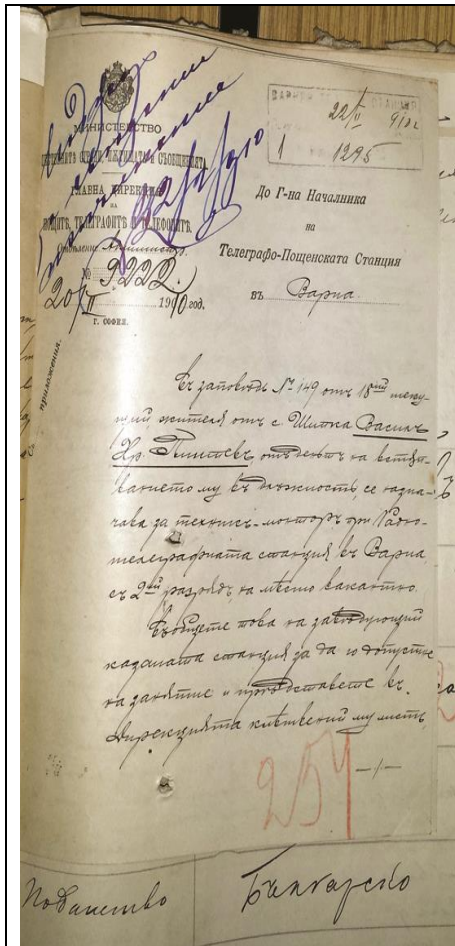 МИНИСТЕРСТВО
ЖЕЛѢЗНИЦИТѢ, ПОЩИТѢ
ГЛАВНА ДИРЕКЦИЯ
НА
ПОЩИТѢ, ТЕЛЕГРАФИТѢ И ТЕЛЕФОНИТѢ.
Отдѣление
№ 9222.
20/II 1910 год.
Г. СОФИЯ.
приложения.
22/II 910
1 1295
До Г-на Началника
на
Телеграфо-Пощенската Станция
въ Варна
Съ заповѣдь № 149 отъ 18ий теку-
щий жителя отъ с. Шипка Василъ
Хр. отъ деньтъ на встѫп-
ванието му въ длъжность, се назна-
чава за техникъ-монторъ при Радио-
телеграфната станция въ Варна,
съ 2ий разрядъ, на мѣсто вакантно.
Съобщете това на завѣдующий
казаната станция за да го допустне
на занятие и прѣдставете въ
Дирекцията клѣтвений му листъ.
—/—
254
Поданство Българско